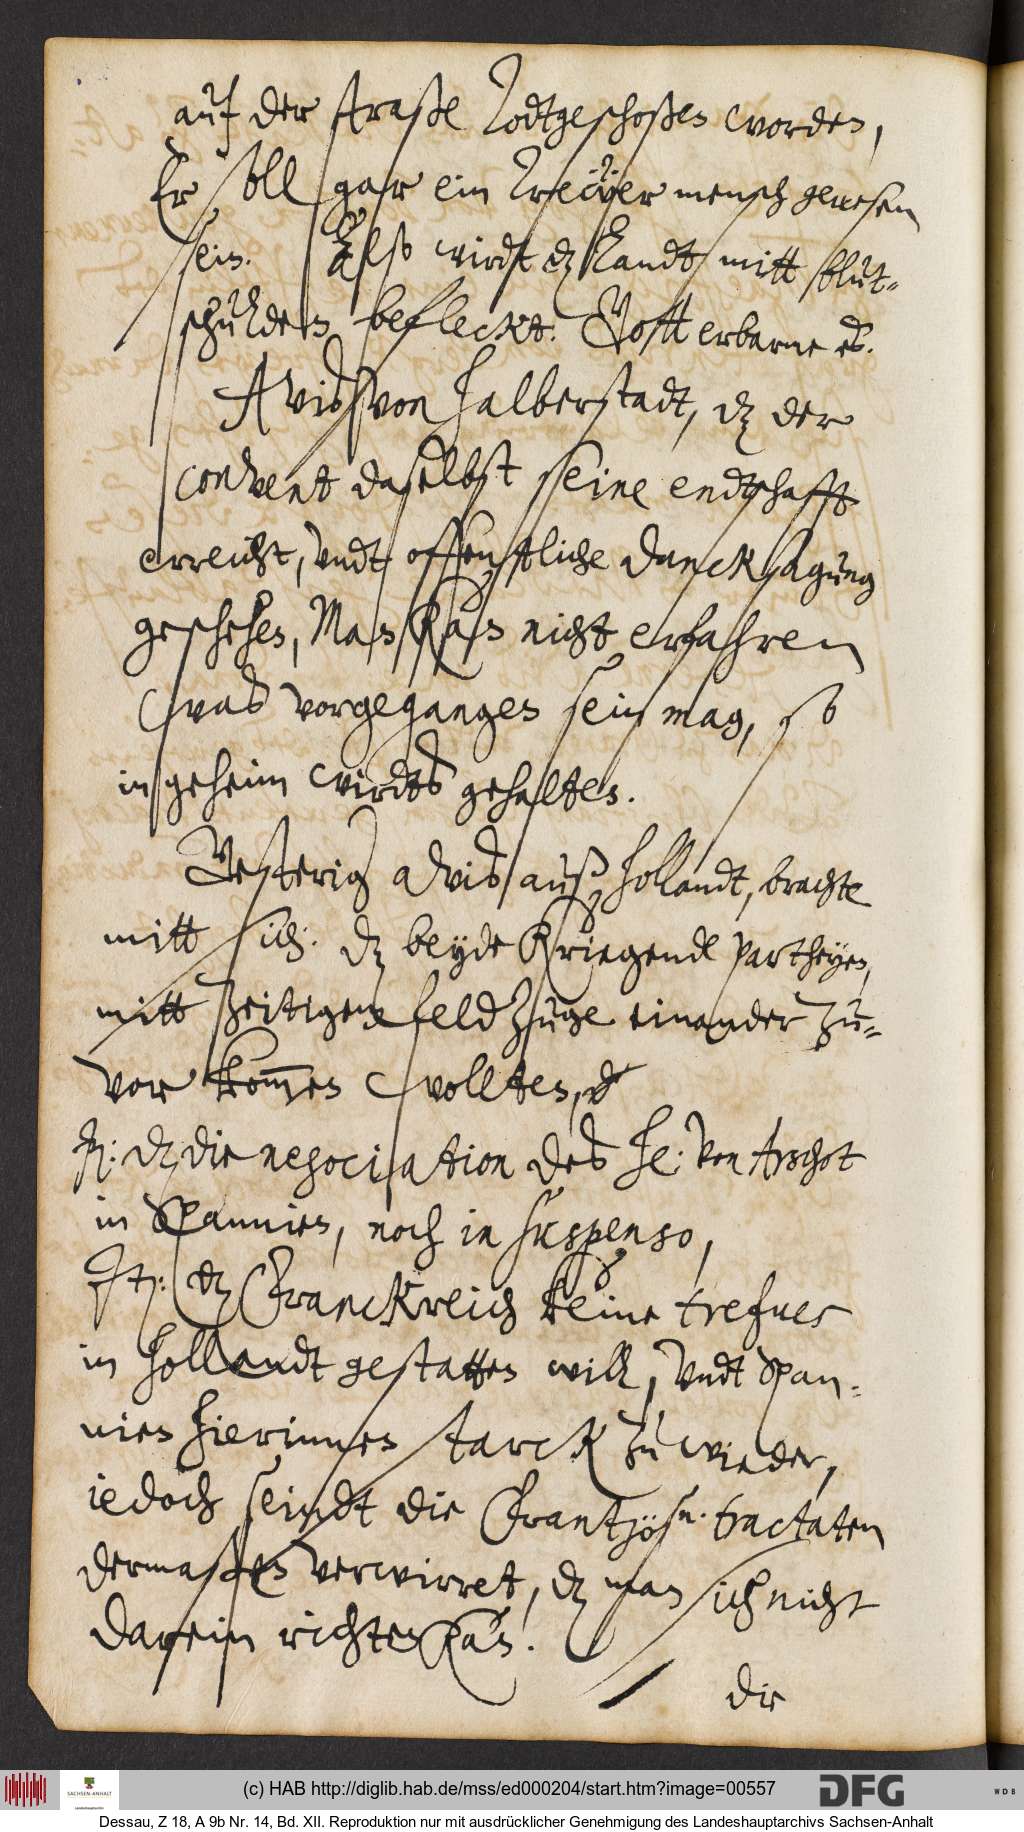 auf der straße Todtgeschoßen worden,
Er soll gar ein Treẅer mensch gewesen
sein. Also wirdt dz Landt mitt blut-
schulden befleckt. Gott erbarme es.
Avis von Halberstadt, dz der
convent daselbst seine endtschafft
erreicht, undt offenttliche dancksagung
geschehen, Man kan nicht erfahren
was vorgegangen sein mag, so
in geheim wirdts gehalten.
Gesterig avis auß Hollandt, brachte
mitt sich: dz beyde kriegende partheyen,
mitt zeitigem feldzuge einander zu-
vor kommen wollten,
It: dz die negociation des He: von Arschot
in Spannien, noch in suspenso,
It: dz Franckreich keine trefues
in Hollandt gestatten will, undt Span-
nien hierinnen starck zu wieder,
iedoch seindt die Frantzös n. tractaten
dermaßen verwirret, dz man sich nicht
darein richten kan.
die
(c) HAB http://diglib.hab.de/mss/ed000204/start.htm?image=00557
SACHSEN-ANHALT
DFG
WDB
Dessau, Z 18, A 9b Nr. 14, Bd. XII. Reproduktion nur mit ausdrücklicher Genehmigung des Landeshauptarchivs Sachsen-Anhalt